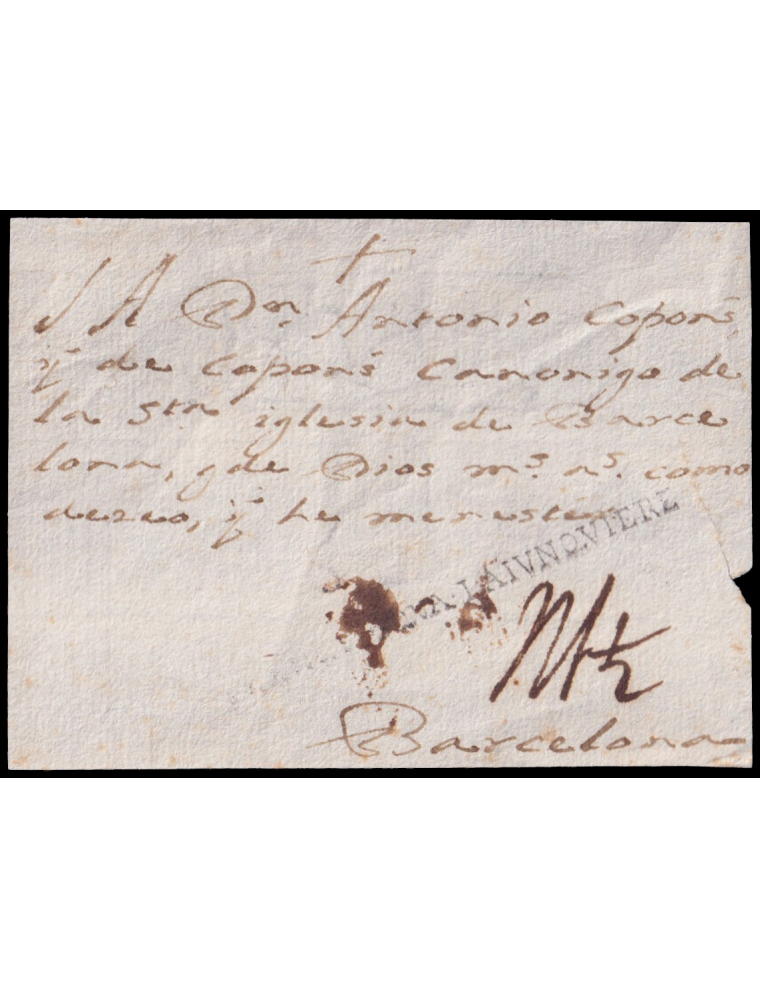 +
A Dn. Antonio Copons,
ÿ de Copons Canonigo de
la Sta iglesia de Barce
lona, gde Dios ms. as. como
dezeo, ÿ he menester
LAIVNQVIERZ
Barcelona